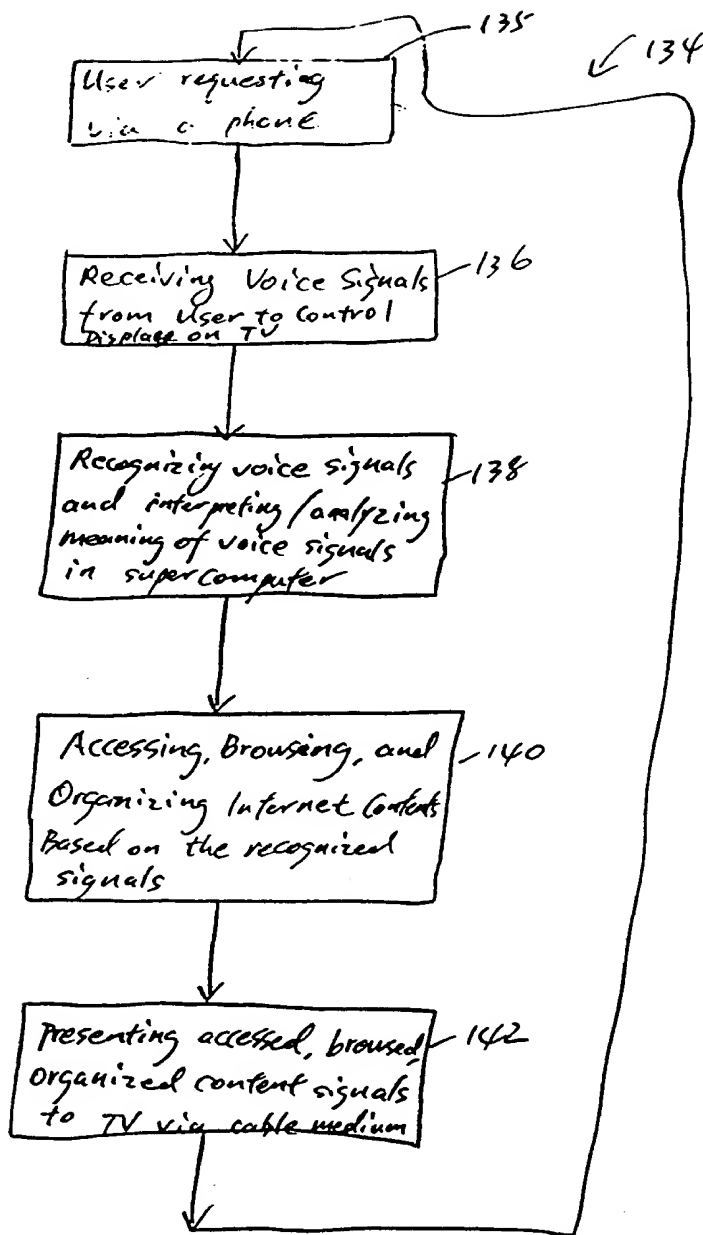 135
134
User requesting
via a phone
Receiving Voice Signals
from User to Control
Display on TV
136
Recognizing voice signals
and interpeting/analyzing
meaning of voice signals
in supercomputer
138
Accessing, Browsing, and
Organizing Internet Contents
Based on the recognized
signals
140
Presenting accessed, browsed,
organized content signals
to TV via cable medium
142